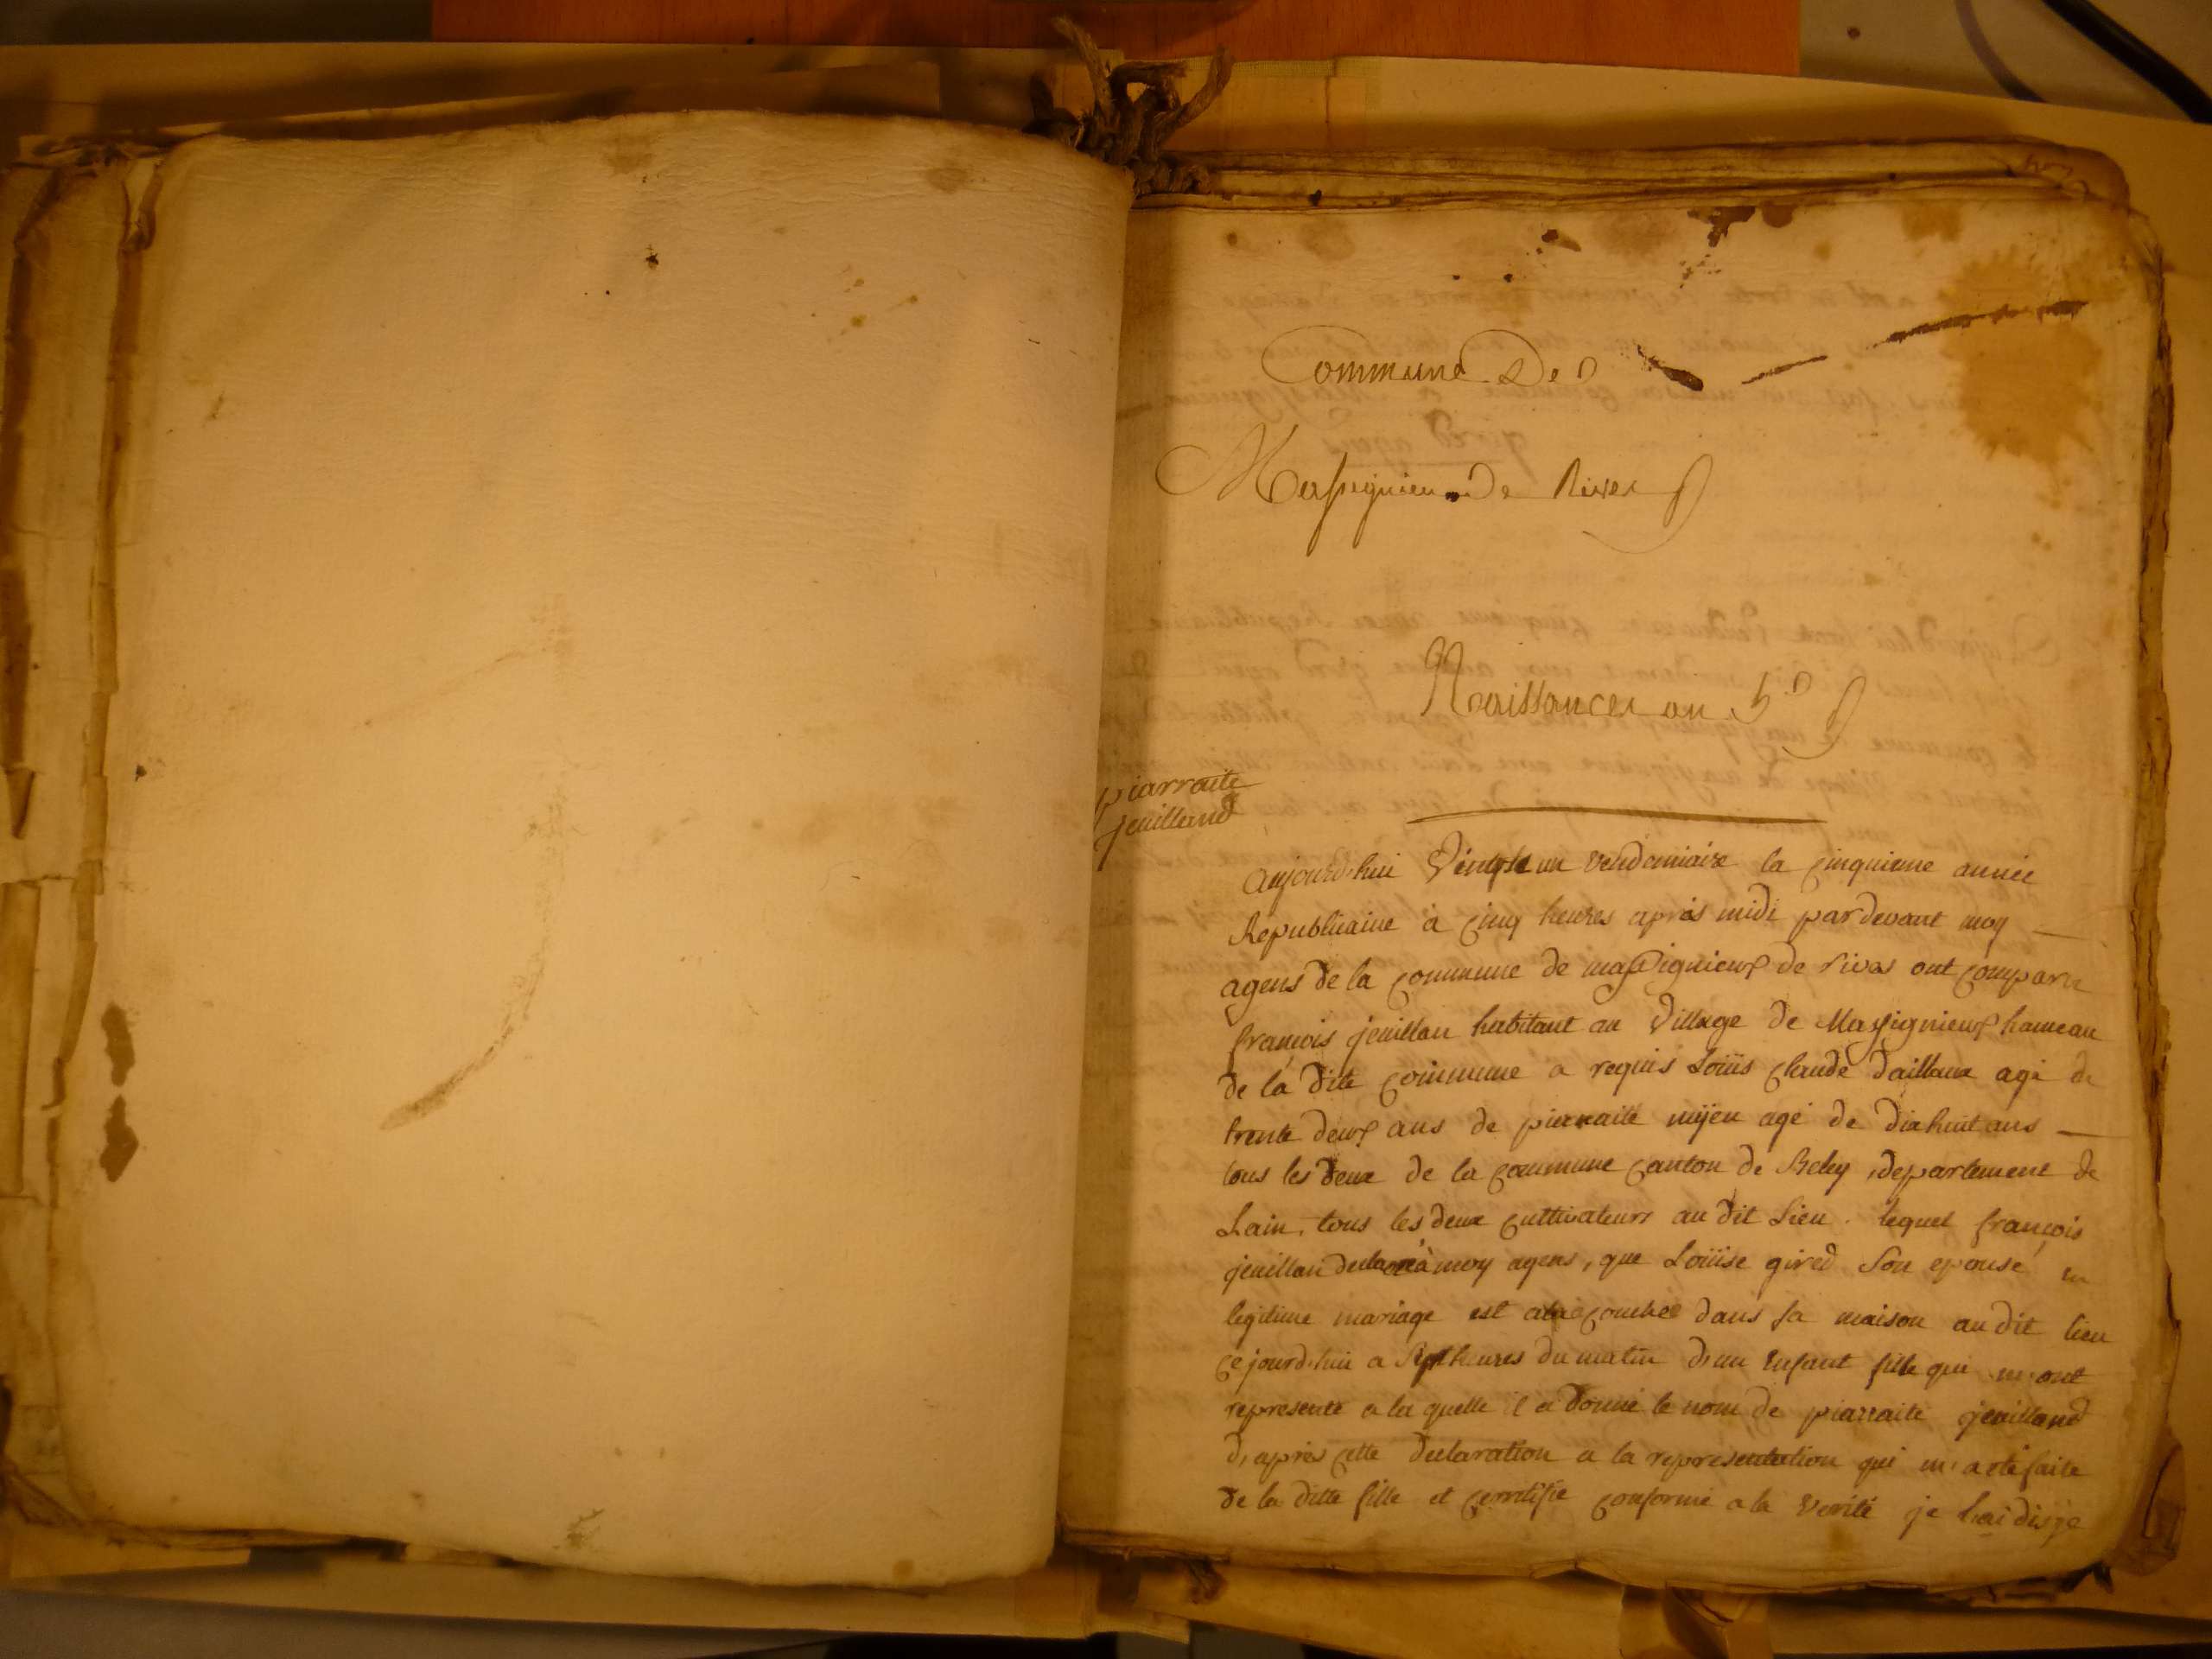 Commune De
Massignieu De Rives
Naissances an 5
piarraite
jeuilland
aujourd'hui Vingt un vendemiaire la cinquieme année
Republicaine à cinq heures après midi pardevant moy
agens de la commune de massignieux de rives ont comparu
francois jeuillan habitant au Village de Massignieux hameau
de la dite commune a requis Loüis claude daillaux agé de
trente deux ans de piarraite mijeu agé de dixhuit ans
tous les deux de la commune canton de Beley, departement de
Lain, tous les deux cultivateurs au dit Lieu. lequel francois
jeuillan declare à moy agens, que Loüise gired Son epouse en
legitime mariage est accouchée dans sa maison au dit lieu
cejourd'hui a Sept heures du matin d'un Enfant fille qui m'ont
represente a la quelle il a donné le nom de piarraite jeuilland
d'apres cette declaration a la representation qui m'a eté faite
de la ditte fille et certifie conforme a la verité je